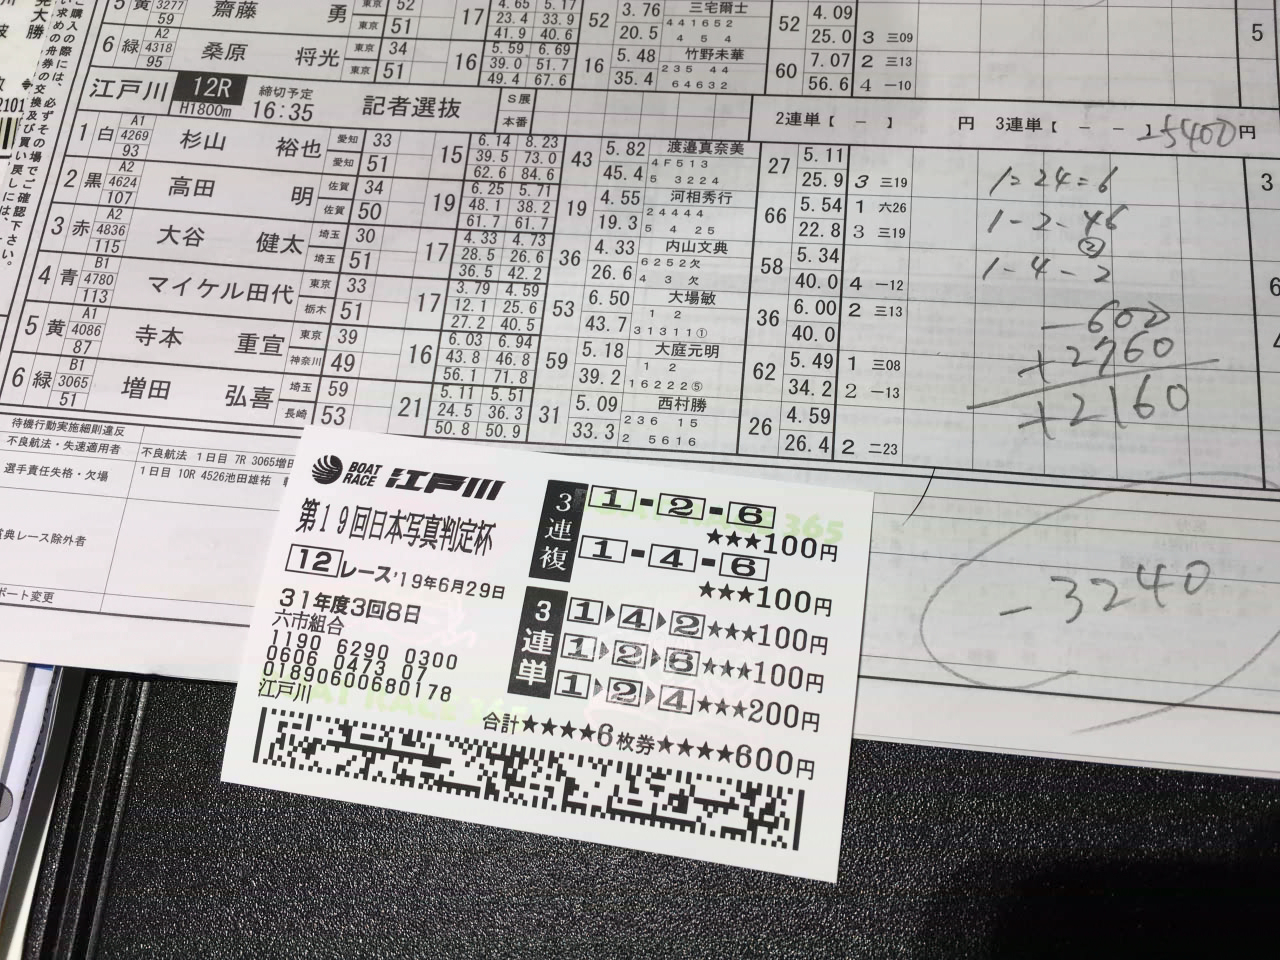 齋藤 勇
6 緑 A2 4318 95 桑原 将光 東京 34 東京 51 16 5.59 6.69 39.0 51.7 49.4 67.6 16 5.48 35.4 竹野未華 235 44 64632 60 7.07 56.6 2 三13 4 -10
江戸川 12R H1800m 締切予定 16:35 記者選抜 S展 本番 2連単【 - 】 円 3連単【 - - 25400円
1 白 A1 4269 93 杉山 裕也 愛知 33 愛知 51 15 6.14 8.23 39.5 73.0 62.6 84.6 43 5.82 45.4 渡邉真奈美 4F513 5 3224 27 5.11 25.9 3 三19
2 黒 A2 4624 107 高田 明 佐賀 34 佐賀 50 19 6.25 5.71 48.1 38.2 61.7 61.7 19 4.55 19.3 河相秀行 24444 5 4 25 66 5.54 22.8 1 六26 3 三19
3 赤 A2 4836 115 大谷 健太 埼玉 30 埼玉 51 17 4.33 4.73 28.5 26.6 36.5 42.2 36 4.33 26.6 内山文典 6252欠 4 3 欠 58 5.34 40.0 4 -12
4 青 B1 4780 113 マイケル田代 東京 33 栃木 51 17 3.79 4.59 12.1 25.6 27.2 40.5 53 6.50 43.7 大場敏 1 2 31311① 36 6.00 40.0 2 三13
5 黄 A1 4086 87 寺本 重宣 東京 39 神奈川 49 16 6.03 6.94 43.8 46.8 56.1 71.8 59 5.18 39.2 大庭元明 1 2 16222⑤ 62 5.49 34.2 1 三08 2 -13
6 緑 B1 3065 51 増田 弘喜 埼玉 59 長崎 53 21 5.11 5.51 24.5 36.3 50.8 50.9 31 5.09 33.3 西村勝 236 15 2 5616 26 4.59 26.4 2 二23
1=24=6
1-2-46
②
1-4-2
-600
+2760
+2160
-3240
待機行動実施細則違反
不良航法・失速適用者 不良航法 1日目 7R 3065増田
選手責任失格・欠場 1日目 10R 4526池田雄祐
典レース除外者
ボート変更
BOAT RACE 江戸川
第19回日本写真判定杯
12レース'19年6月29日
31年度3回8日
六市組合
1190 6290 0300
0606 0473 07
01890600680178
江戸川
3連複
1-2-6
★★★100円
1-4-6
★★★100円
3連単
1▶4▶2★★★100円
1▶2▶6★★★100円
1▶2▶4★★★200円
合計★★★★6枚券★★★★600円